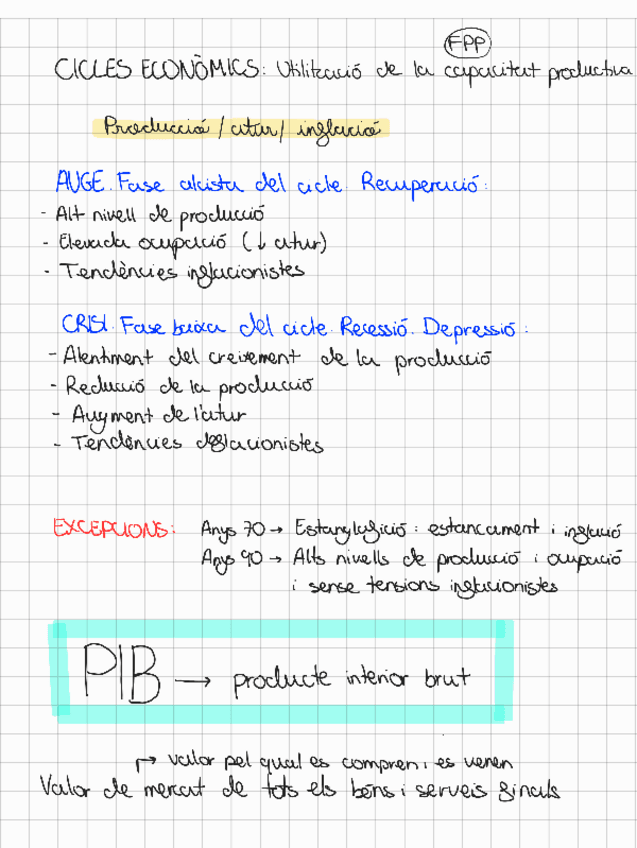 FPP
CICLES ECONÒMICS: Utilització de la capacitat productiva
Producció / atur / inflació
AUGE. Fase alcista del cicle. Recuperació:
- Alt nivell de producció
- Elevada ocupació (↓ atur)
- Tendències inflacionistes
CRISI. Fase baixa del cicle. Recessió. Depressió:
- Alentiment del creixement de la producció
- Reducció de la producció
- Augment de l'atur
- Tendències deflacionistes
EXCEPCIONS: Anys 70 → Estanflació: estancament i inflació
Anys 90 → Alts nivells de producció i ocupació
i sense tensions inflacionistes
PIB → producte interior brut
↱ valor pel qual es compren i es venen
Valor de mercat de tots els béns i serveis finals